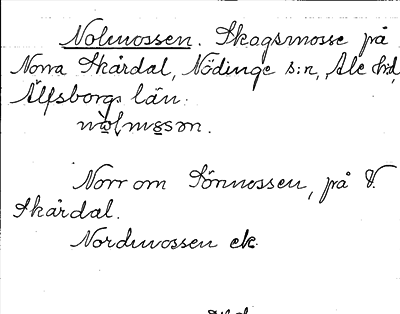 Nolmossen. Skogsmosse på
Norra Skårdal, Nödinge s:n, Ale hd,
Älfsborgs län.
Norr om Sönnossen, på V.
Skårdal.
Nordmossen ek.